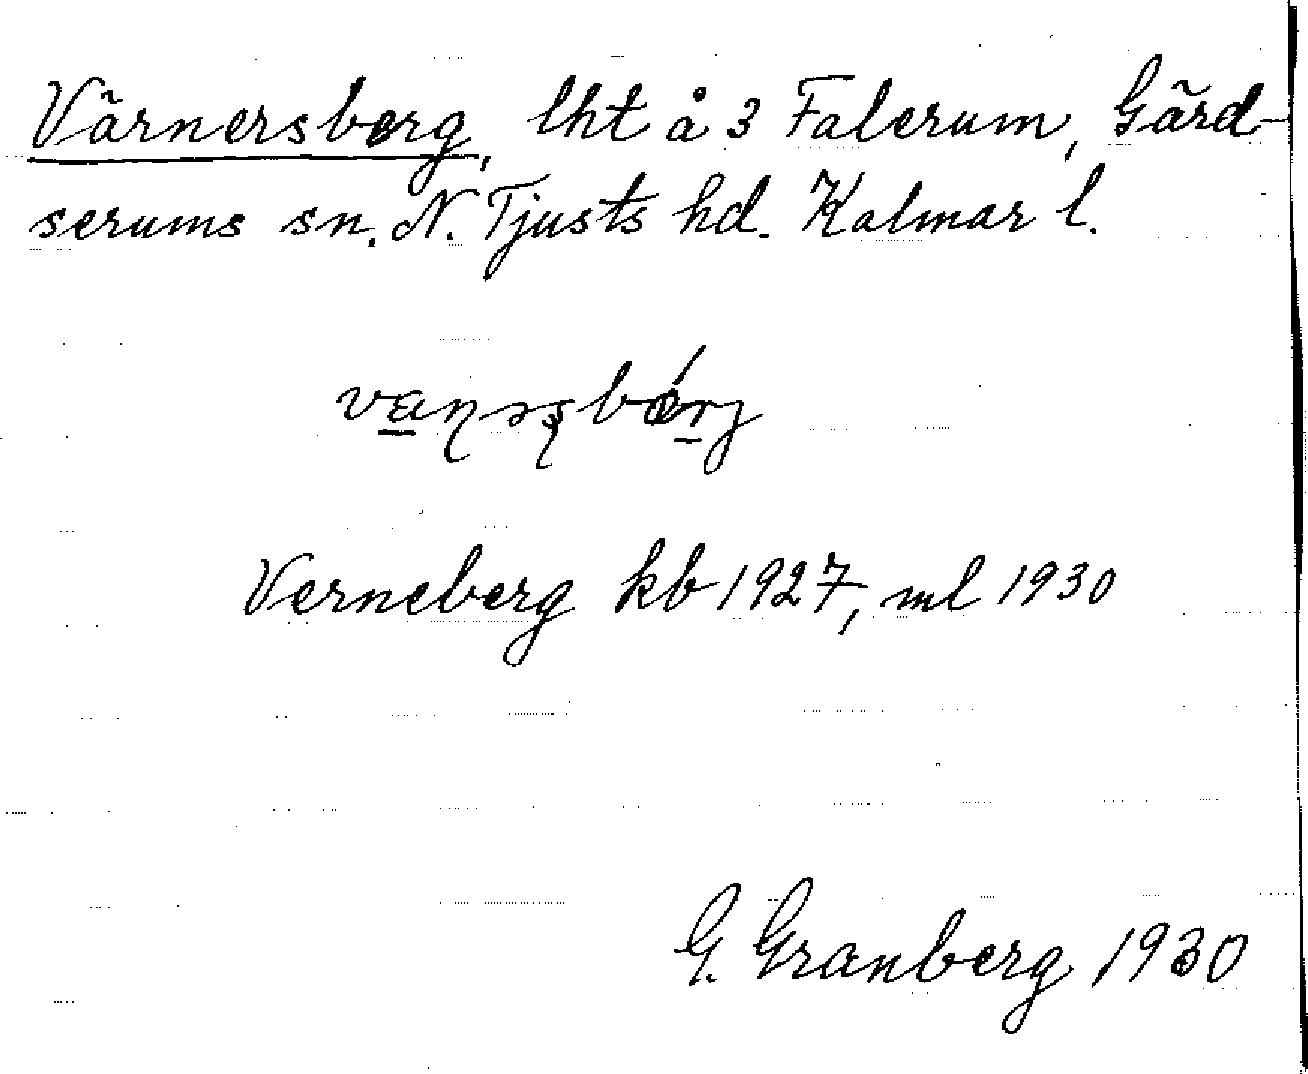 Värnersberg, lht å 3 Falerum, Gärd-
serums sn. N. Tjusts hd. Kalmar l.
Verneberg kb 1927, ml 1930
G. Granberg 1930